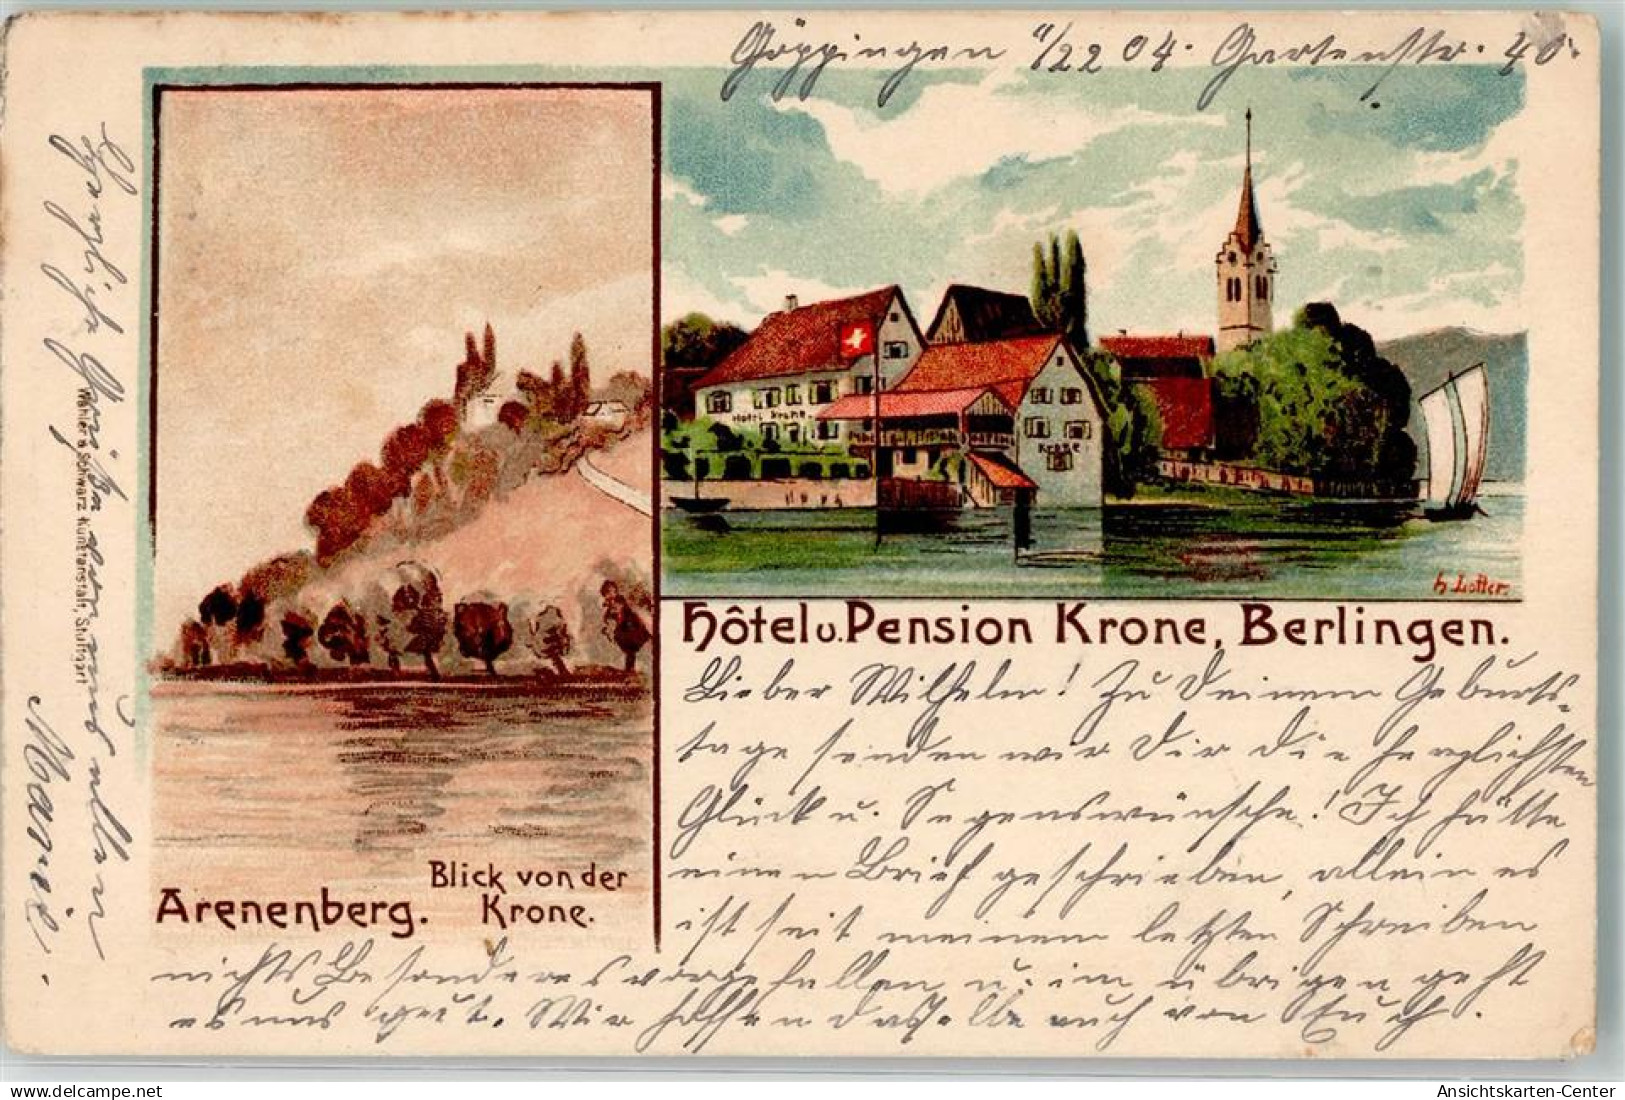 Göppingen 11/2 2 04. Gartenstr. 40.
Hotel Krone
Krone
h Lotter.
Hôtel u. Pension Krone, Berlingen.
Lieber Wilhelm! Zu Deinem Geburts-
tage senden wir Dir die herzlichsten
Glück u. Segenswünsche! Ich hätte
einen Brief geschrieben, allein es
ist seit meinem letzten Schreiben
nichts Besonderes vorgefallen u. im übrigen geht
es uns gut. Wir hoffen dasselbe auch von Euch.
Herzliche Grüße von uns allen
Marie.
Arenenberg.
Blick von der
Krone.
Wähler & Schwarz Kunstanstalt, Stuttgart
Ansichtskarten-Center